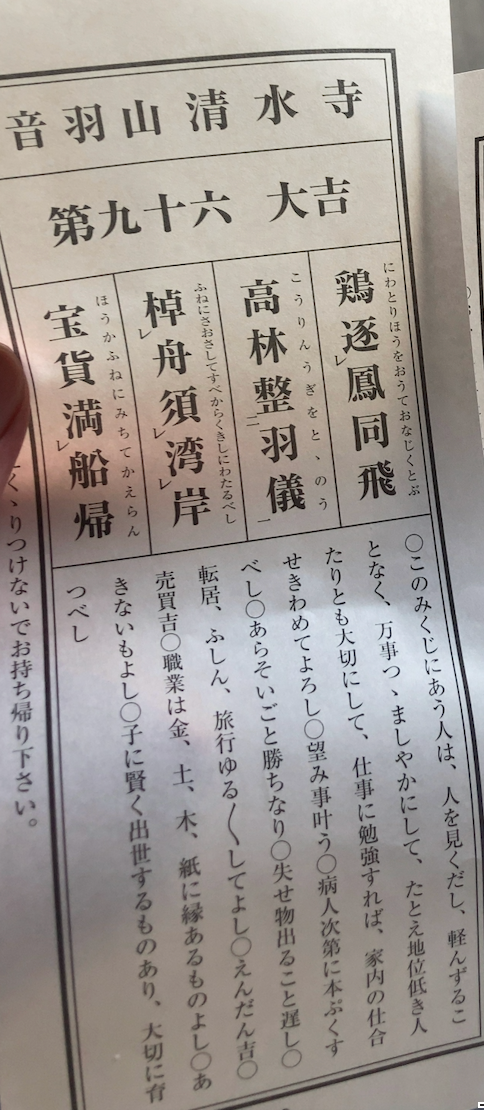 音羽山 清水寺
第九十六 大吉
にわとりほうをおうておなじくとぶ
鶏逐レ鳳同飛
こうりんうぎをとゝのう
高林整二羽儀一
ふねにさおさしてすべからくきしにわたるべし
棹レ舟須レ湾レ岸
ほうかふねにみちてかえらん
宝貨満レ船帰
〇このみくじにあう人は、人を見くだし、軽んずるこ
となく、万事つゝましやかにして、たとえ地位低き人
たりとも大切にして、仕事に勉強すれば、家内の仕合
せきわめてよろし〇望み事叶う〇病人次第に本ぷくす
べし〇あらそいごと勝ちなり〇失せ物出ること遅し〇
転居、ふしん、旅行ゆる〱してよし〇えんだん吉〇
売買吉〇職業は金、土、木、紙に縁あるものよし〇あ
きないもよし〇子に賢く出世するものあり、大切に育
つべし
くゝりつけないでお持ち帰り下さい。